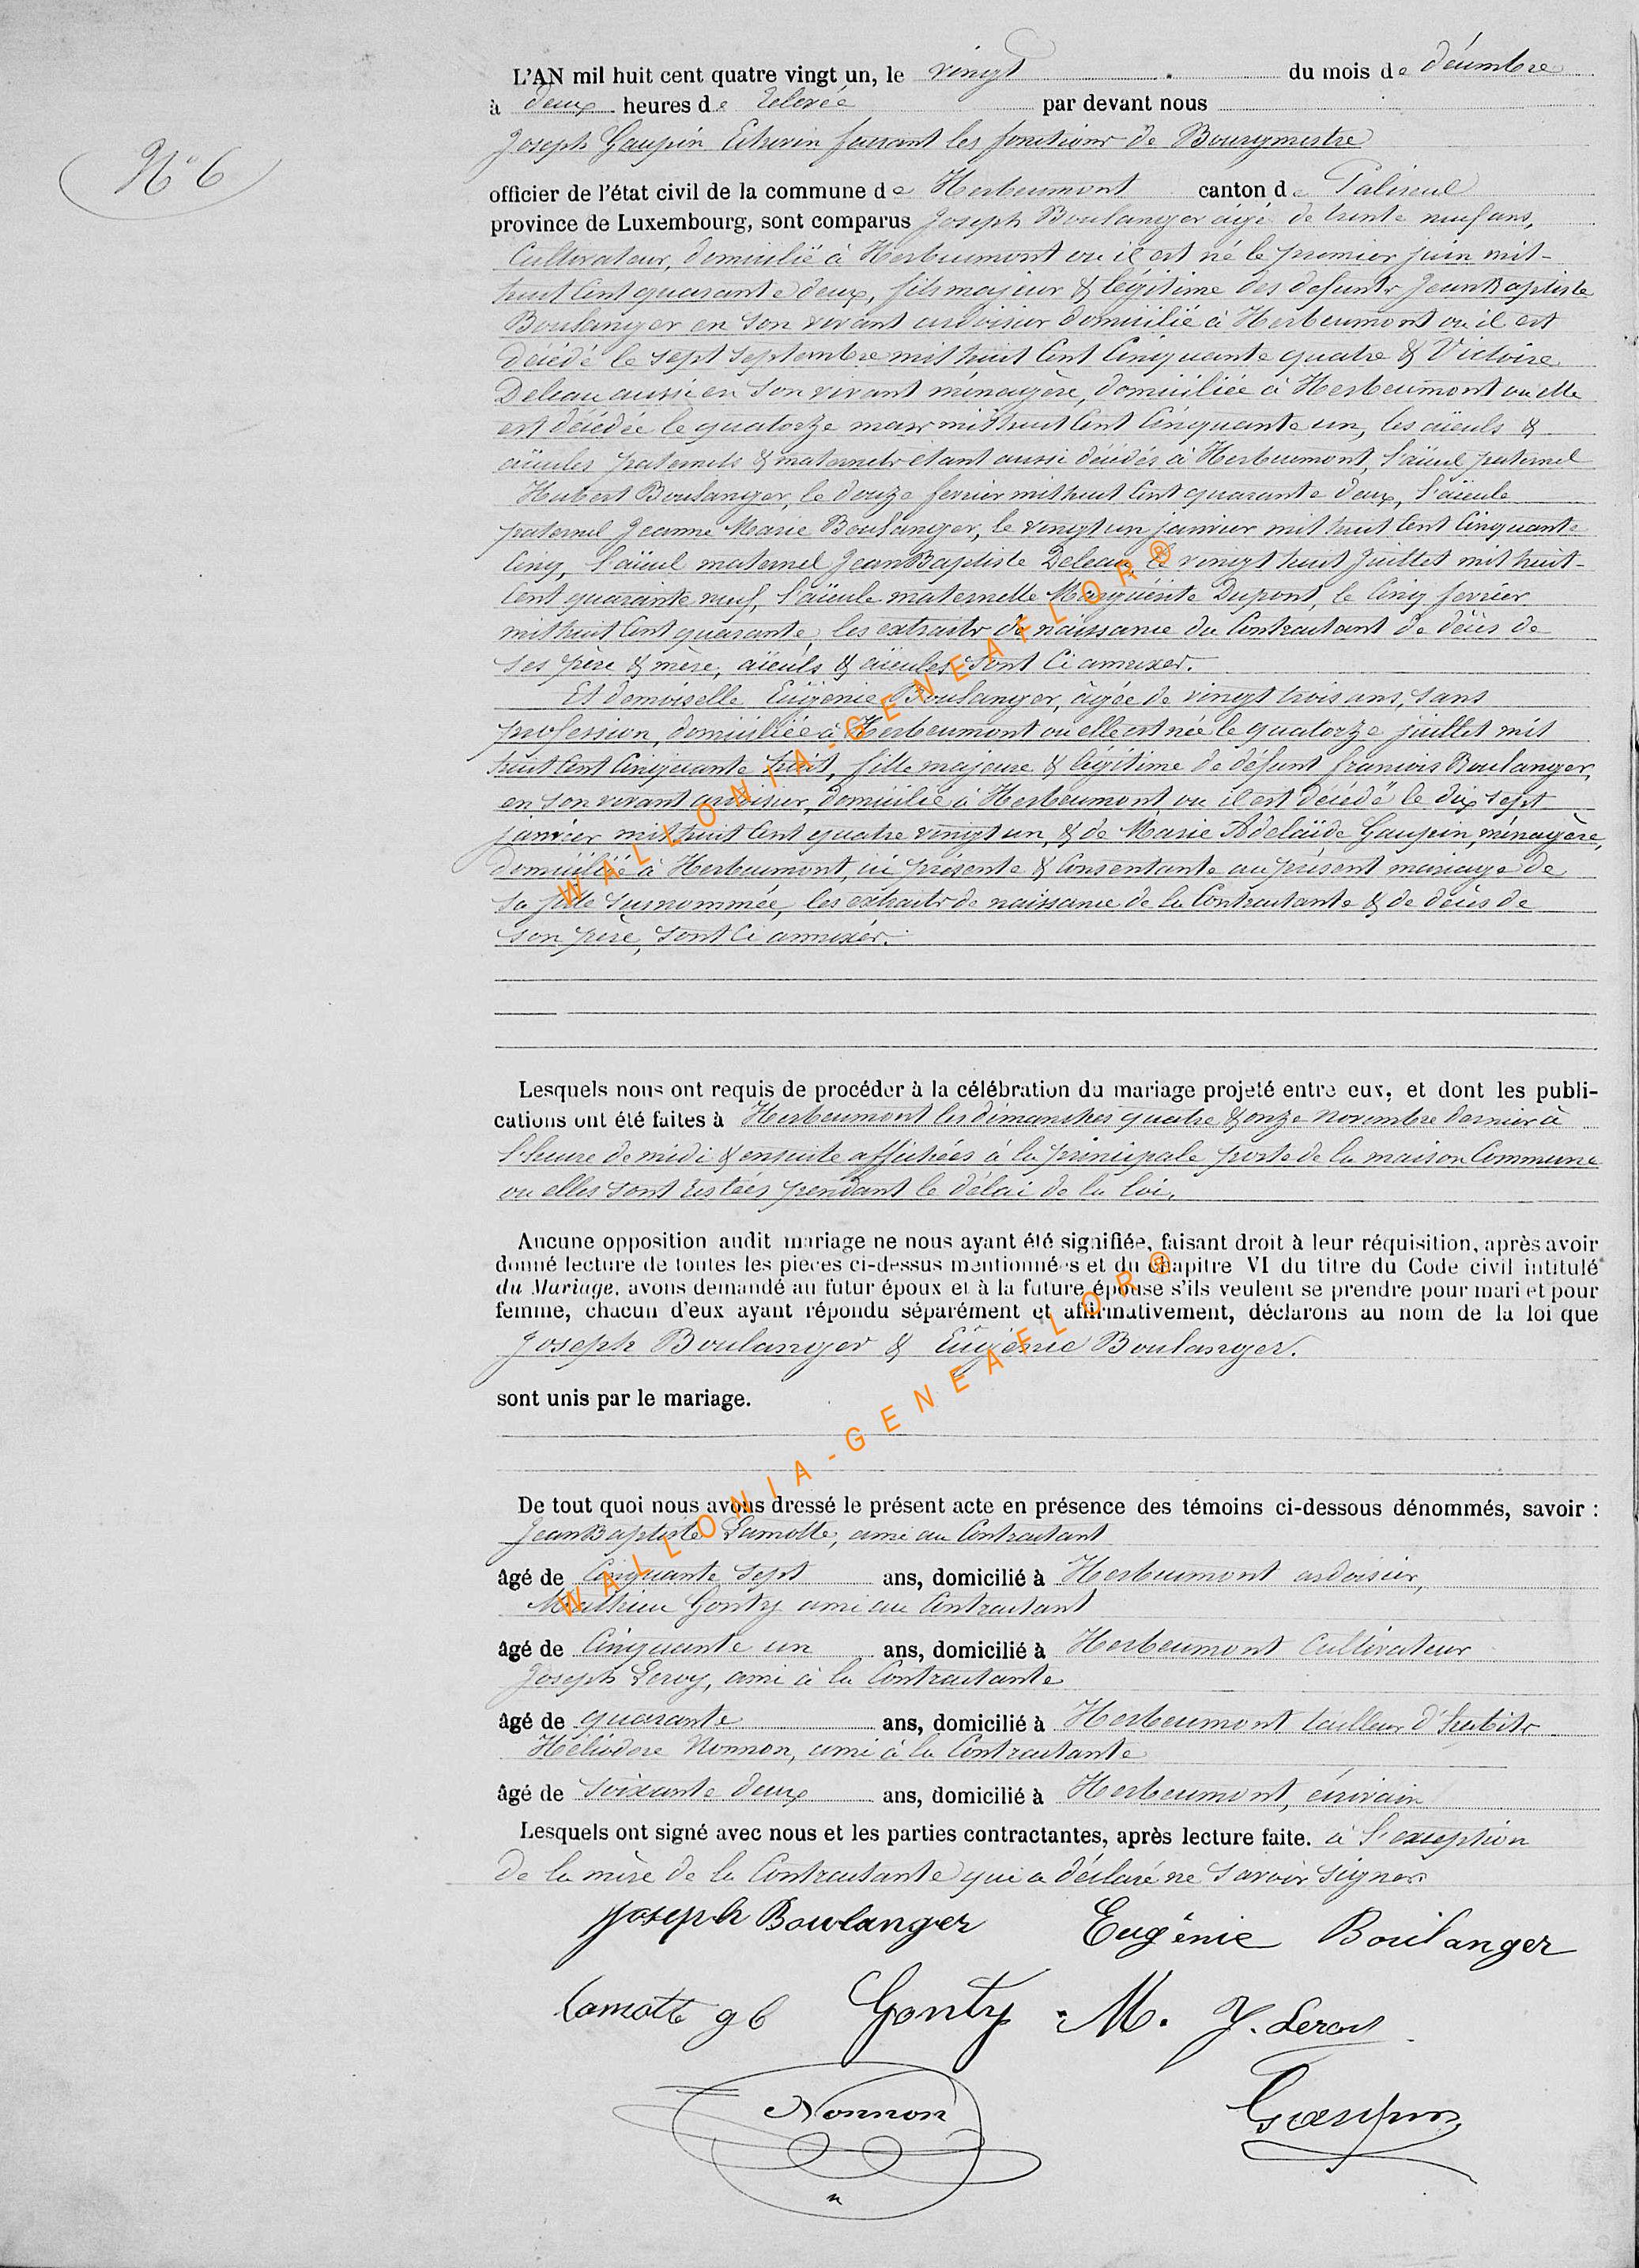 L'AN mil huit cent quatre vingt un, le vingt du mois de décembre
à deux heures de relevée par devant nous
Joseph Gaupin Echevin faisant les fonctions de Bourgmestre
N° 6
officier de l'état civil de la commune de Herbeumont canton de Paliseul
province de Luxembourg, sont comparus Joseph Boulanger âgé de trente neuf ans,
Cultivateur, domicilié à Herbeumont où il est né le premier juin mil-
huit cent quarante deux, fils majeur & légitime des défunts Jean Baptiste
Boulanger en son vivant ardoisier domicilié à Herbeumont où il est
décédé le sept septembre mil huit cent cinquante quatre & Victoire
Deleau aussi en son vivant ménagère, domiciliée à Herbeumont où elle
est décédée le quatorze mars mil huit cent cinquante un, les aïeuls &
aïeules paternels & maternels étant aussi décédés à Herbeumont, l'aïeul paternel
Hubert Boulanger, le douze fevrier mil huit cent quarante deux, l'aïeule
paternel Jeanne Marie Boulanger, le vingt un janvier mil huit cent cinquante
cinq, l'aïeul maternel Jean Baptiste Deleau, le vingt huit juillet mil huit-
cent quarante neuf, l'aïeule maternelle Marguérite Dupont, le cinq fevrier
mil huit cent quarante, les extraits de naissance du Contractant de décès de
ses père & mère, aïeuls & aïeules sont ci annexes.
Et demoiselle Eugénie Boulanger, âgée de vingt trois ans, sans
profession, domiciliée à Herbeumont où elle est née le quatorze juillet mil
huit cent cinquante huit, fille majeure & légitime de défunt François Boulanger,
en son vivant ardoisier, domicilié à Herbeumont où il est décédé le dix sept
janvier mil huit cent quatre vingt un, & de Marie Adélaïde Gaupin, ménagère,
domiciliée à Herbeumont, ici présente & consentante au présent mariage de
sa fille susnommée, les extraits de naissance de la Contractante & de décès de
son père, sont ci annexés.
WALLONIA-GENEAFLOR®
Lesquels nous ont requis de procéder à la célébration du mariage projeté entre eux, et dont les publi-
cations ont été faites à Herbeumont les dimanches quatre & onze novembre dernier à
l'heure de midi & ensuite affichées à la principale porte de la maison Commune
où elles sont restées pendant le délai de la loi.
Aucune opposition audit mariage ne nous ayant été signifiée, faisant droit à leur réquisition, après avoir
donné lecture de toutes les pièces ci-dessus mentionnées et du chapitre VI du titre du Code civil intitulé
du Mariage, avons demandé au futur époux et à la future épouse s'ils veulent se prendre pour mari et pour
femme, chacun d'eux ayant répondu séparément et affirmativement, déclarons au nom de la loi que
Joseph Boulanger & Eugénie Boulanger.
sont unis par le mariage.
WALLONIA-GENEAFLOR®
De tout quoi nous avons dressé le présent acte en présence des témoins ci-dessous dénommés, savoir :
Jean Baptiste Lamotte, ami au Contractant
âgé de Cinquante sept ans, domicilié à Herbeumont ardoisier,
Mathieu Gonty ami au Contractant
âgé de Cinquante un ans, domicilié à Herbeumont Cultivateur
Joseph Leroy, ami à la Contractante
âgé de quarante ans, domicilié à Herbeumont tailleur d'habits
Héliodore Nonnon, ami à la Contractante
âgé de soixante deux ans, domicilié à Herbeumont, écrivain
Lesquels ont signé avec nous et les parties contractantes, après lecture faite. à l'exception
de la mère de la Contractante qui a déclaré ne savoir signer.
Joseph Boulanger Eugénie Boulanger
Lamotte gb Gonty. M. J. Leroy
Nonnon Gaupin